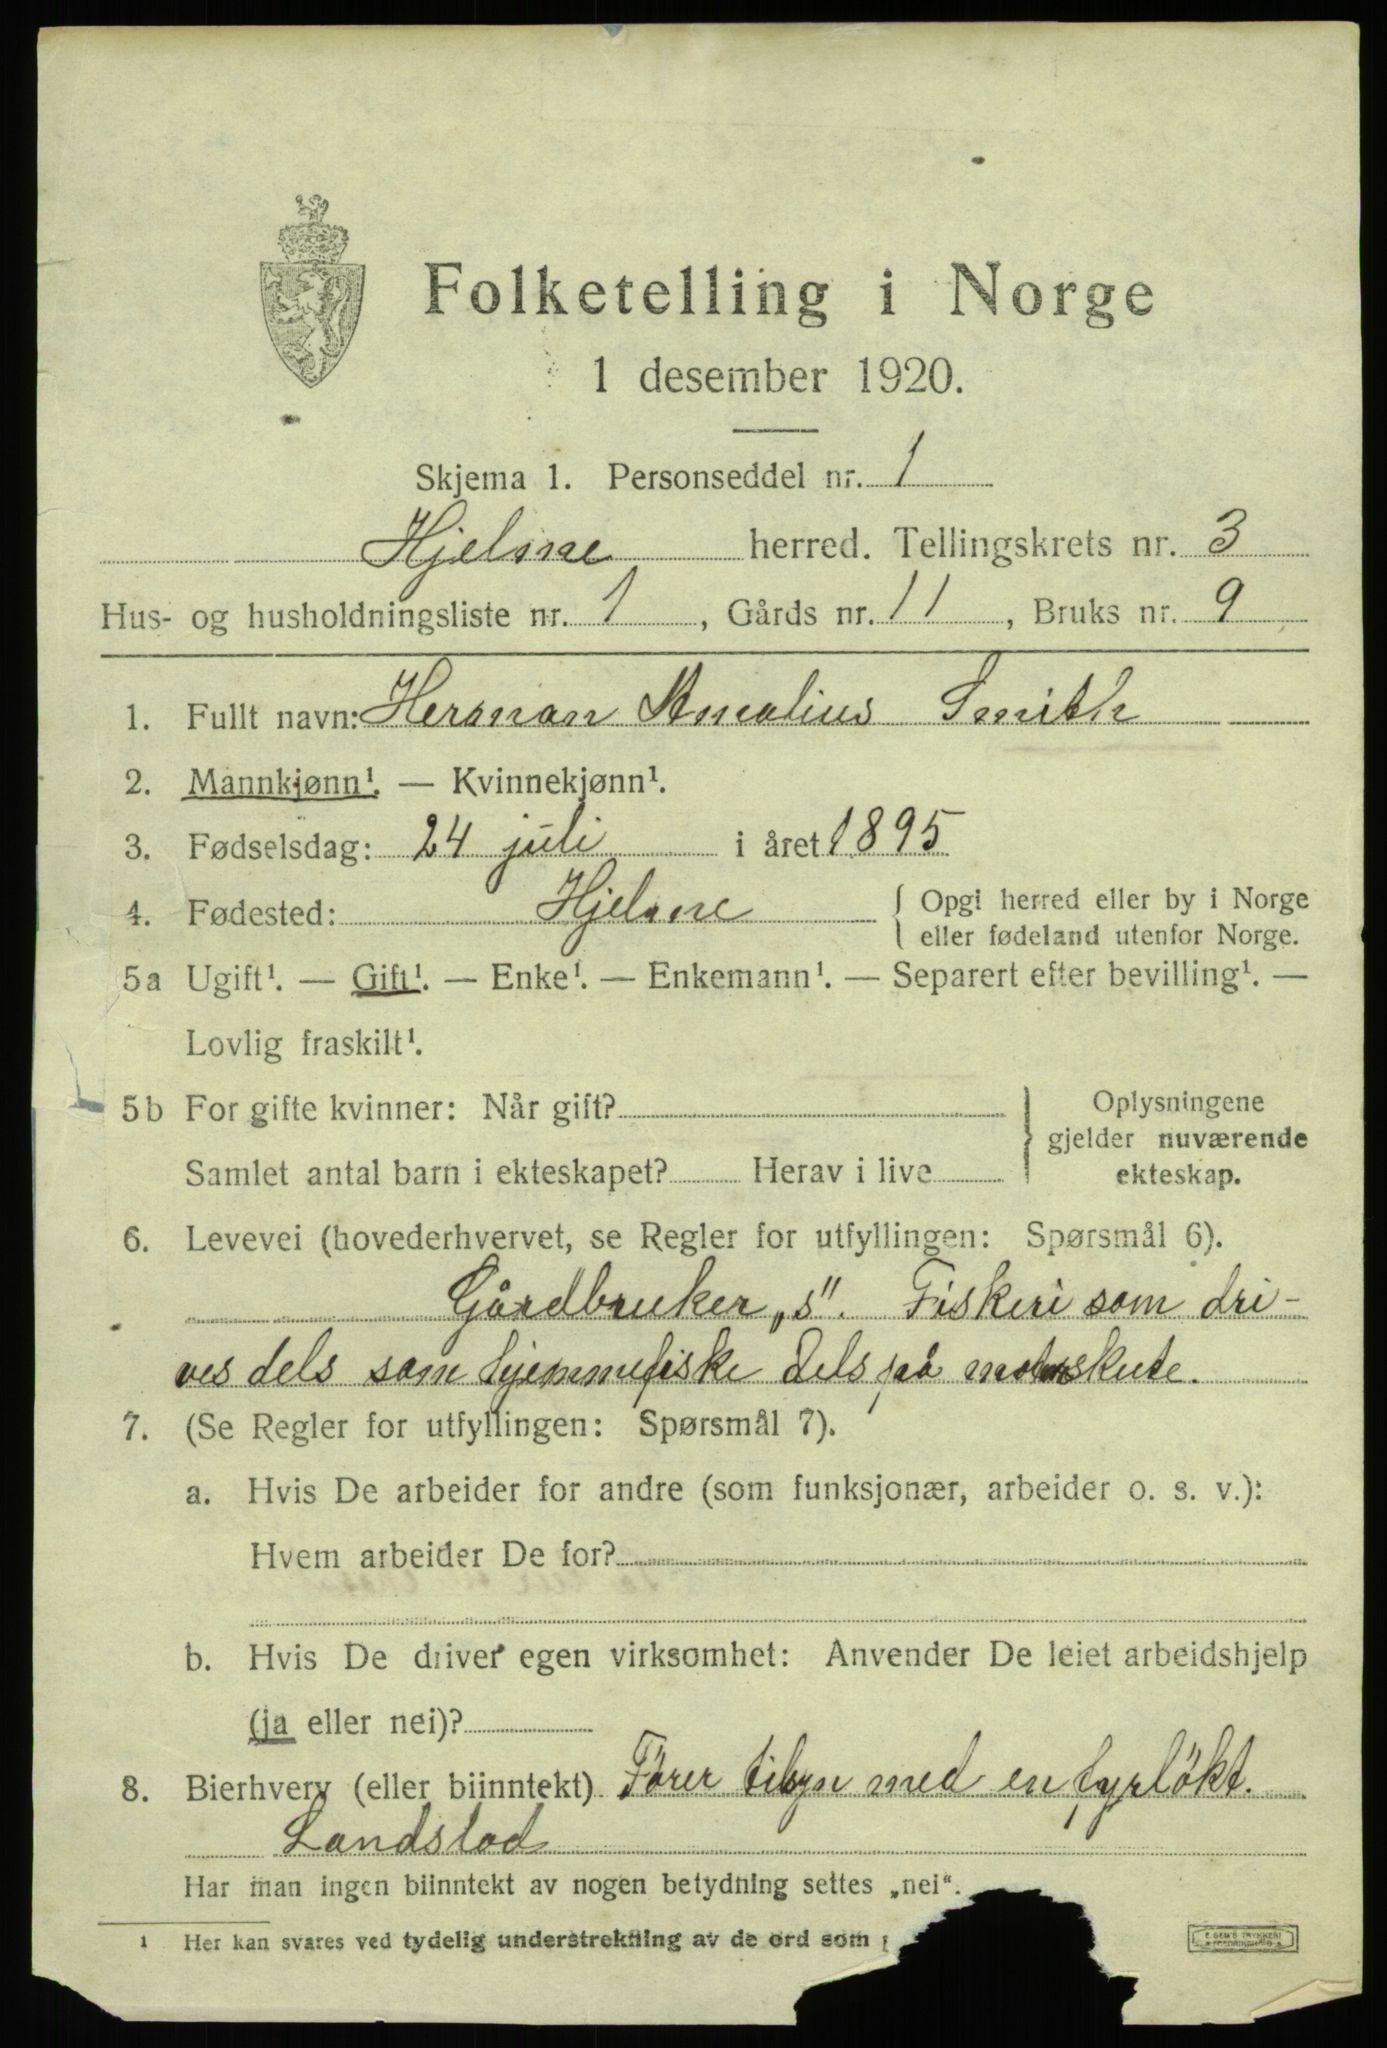 Folketelling i Norge
1 desember 1920.
Skjema 1. Personseddel nr. 1
Hjelme herred. Tellingskrets nr. 3
Hus- og husholdningsliste nr. 1, Gårds nr. 11, Bruks nr. 9
1. Fullt navn: Herman Amalius Smith
2. Mannkjønn¹. — Kvinnekjønn¹.
3. Fødselsdag: 24 juli i året 1895
4. Fødested: Hjelme { Opgi herred eller by i Norge
eller fødeland utenfor Norge.
5a Ugift¹. — Gift¹. — Enke¹. — Enkemann¹. — Separert efter bevilling¹. —
Lovlig fraskilt¹.
5b For gifte kvinner: Når gift? } Oplysningene
gjelder nuværende
Samlet antal barn i ekteskapet? Herav i live ekteskap.
6. Levevei (hovederhvervet, se Regler for utfyllingen: Spørsmål 6).
Gårdbruker „s". Fiskeri som dri-
ves dels som hjemmefiske dels på motorskute.
7. (Se Regler for utfyllingen: Spørsmål 7).
a. Hvis De arbeider for andre (som funksjonær, arbeider o. s. v.):
Hvem arbeider De for?
b. Hvis De driver egen virksomhet: Anvender De leiet arbeidshjelp
(ja eller nei)?
8. Bierhverv (eller biinntekt) Förer tilsyn med en fyrlökt.
Landslod
Har man ingen biinntekt av nogen betydning settes „nei“.
¹ Her kan svares ved tydelig understrekning av de ord som